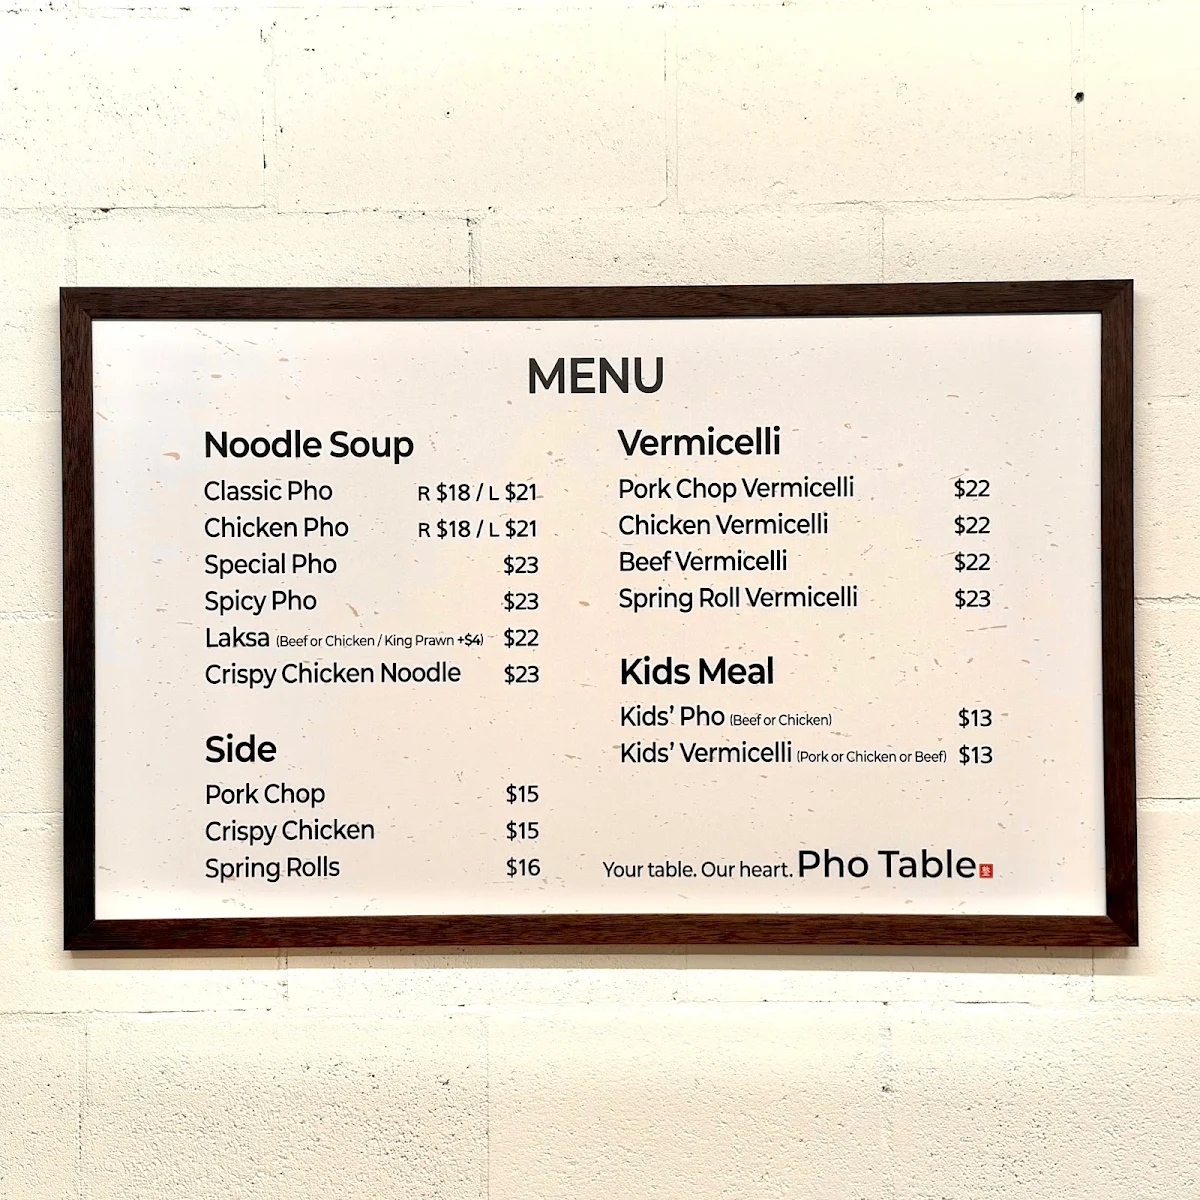 MENU
Noodle Soup
Classic Pho R $18 / L $21
Chicken Pho R $18 / L $21
Special Pho $23
Spicy Pho $23
Laksa (Beef or Chicken / King Prawn +$4) $22
Crispy Chicken Noodle $23
Side
Pork Chop $15
Crispy Chicken $15
Spring Rolls $16
Vermicelli
Pork Chop Vermicelli $22
Chicken Vermicelli $22
Beef Vermicelli $22
Spring Roll Vermicelli $23
Kids Meal
Kids’ Pho (Beef or Chicken) $13
Kids’ Vermicelli (Pork or Chicken or Beef) $13
Your table. Our heart. Pho Table